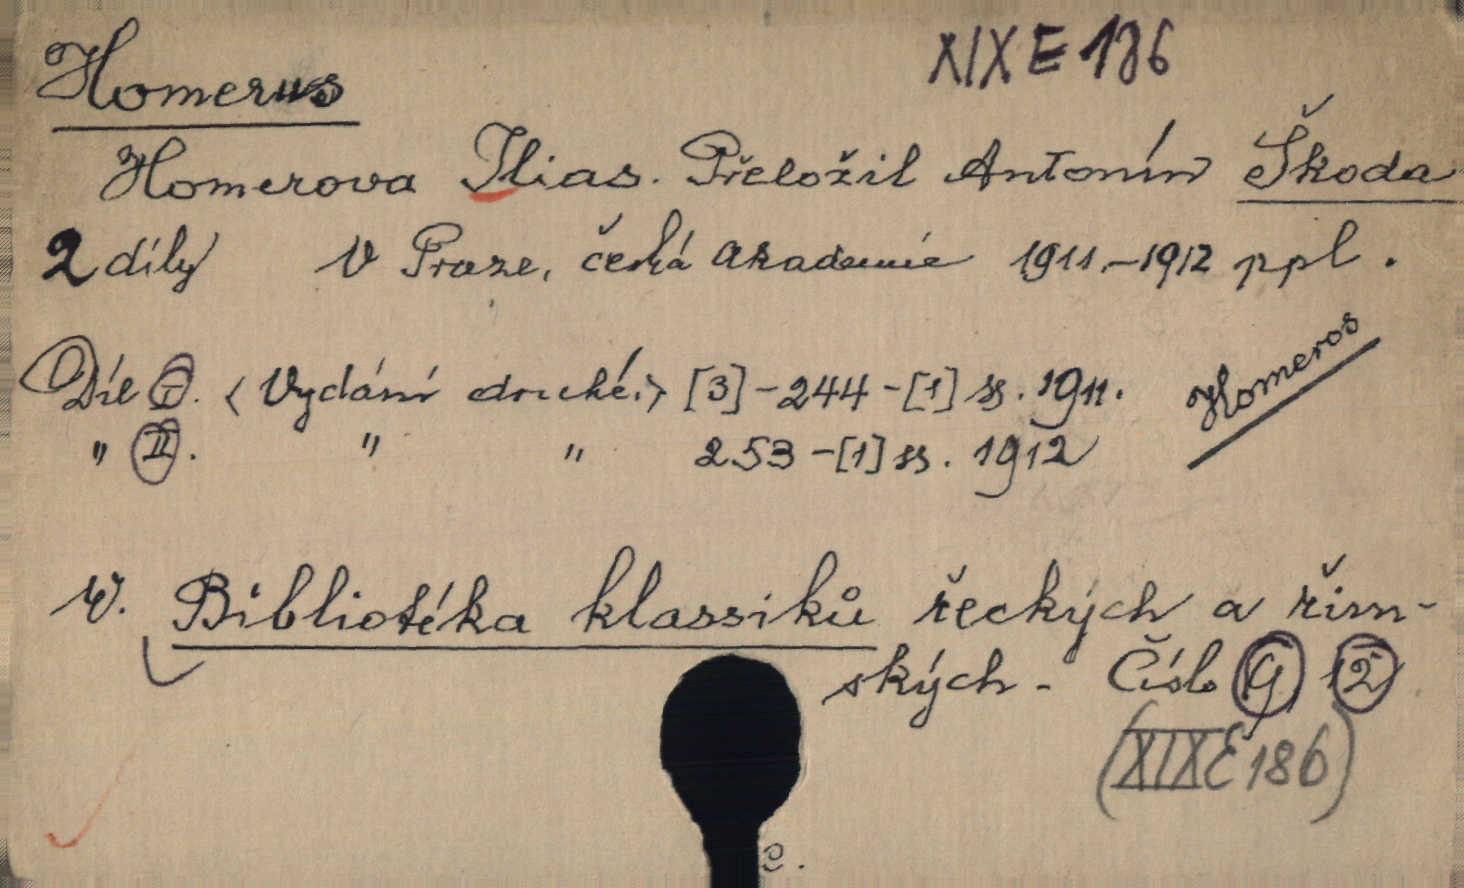 XIX E 186
Homerus
Homerova Ilias. Přeložil Antonín Škoda
2 díly V Praze, česká Akademie 1911.-1912 ppl.
Díl I. (Vydání druhé.) [3]-244-[1] ss. 1911.
" II. " " 253-[1] ss. 1912
Homeros
V. Bibliotéka klassiků řeckých a řím-
ských - Číslo
(XIX E 186)